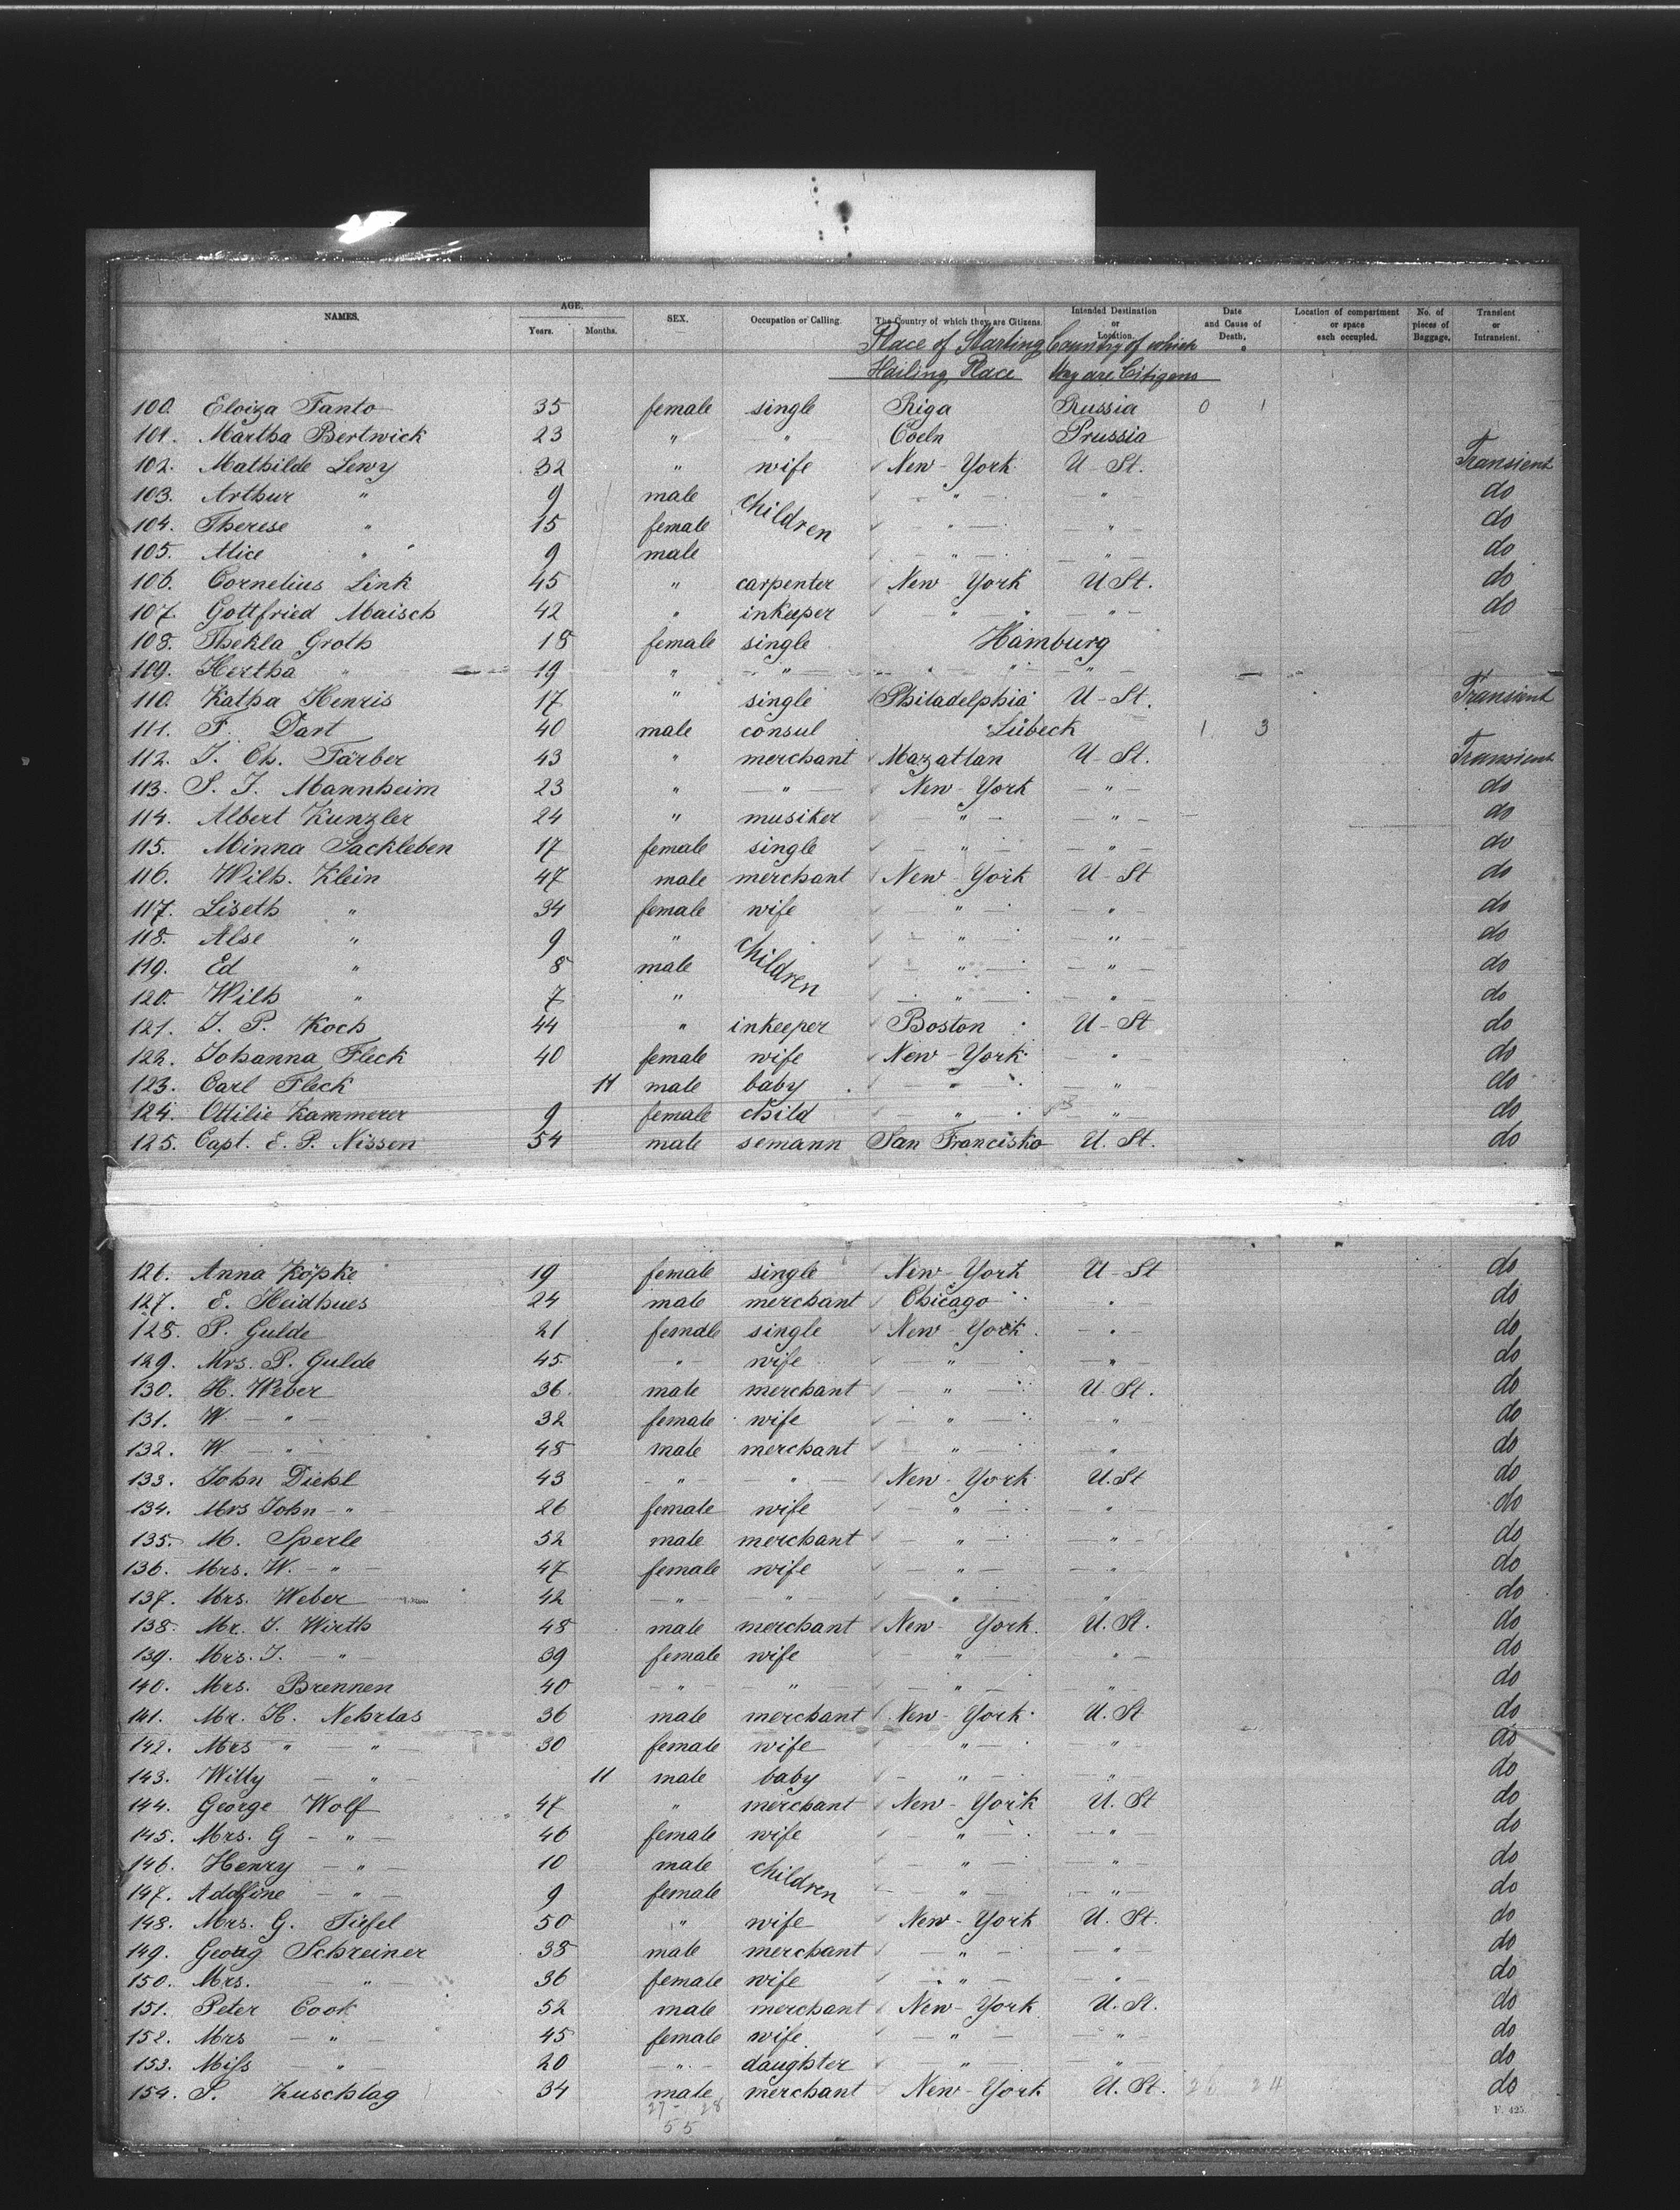 NAMES. AGE. Years. Months. SEX. Occupation or Calling. The Country of which they are Citizens. Intended Destination or Location. Date and Cause of Death. Location of compartment or space each occupied. No. of pieces of Baggage. Transient or Intransient.
Place of Starting Country of which
Hailing Place they are Citizens
100. Eloiza Tanto 35 female single Riga Russia 0 1
101. Martha Bertwick 23 " " Coeln Prussia
102. Mathilde Lewy 32 " wife New-York U-St. Transient
103. Arthur " 9 male children " " do
104. Therese " 15 female " " do
105. Alice " 9 male " " do
106. Cornelius Link 45 " carpenter New-York U St. do
107. Gottfried Maisch 42 " inkeeper " " do
108. Thekla Groth 18 female single Hamburg
109. Hertha " 19 " " " "
110. Katha Henris 17 " single Philadelphia U-St. Transient
111. F. Dart 40 male consul Lübeck 1 3
112. J. Ch. Färber 43 " merchant Mazatlan U-St. Transient
113. S. J. Mannheim 23 " " New-York " do
114. Albert Kunzler 24 " musiker " " do
115. Minna Sackleben 17 female single " " do
116. Wilh. Klein 47 male merchant New-York U-St do
117. Liseth " 34 female wife " " do
118. Alse " 9 " children " " do
119. Ed " 8 male " " do
120. Wilh " 7 " " " do
121. J. P. Koch 44 " inkeeper Boston U-St do
122. Johanna Fleck 40 female wife New-York " do
123. Carl Fleck 11 male baby " " do
124. Ottilie Kammerer 9 female child " " do
125. Capt. E. P. Nissen 54 male semann San Francisko U. St. do
126. Anna Köpke 19 female single New-York U-St do
127. E. Heidhues 24 male merchant Chicago " do
128. P. Gulde 21 female single New-York " do
129. Mrs. P. Gulde 45 " wife " " do
130. H. Weber 36 male merchant " U-St. do
131. W " 32 female wife " " do
132. W. " 48 male merchant " " do
133. John Diehl 43 " " New-York U. St do
134. Mrs John " 26 female wife " " do
135. M. Sperle 52 male merchant " " do
136. Mrs. W. " 47 female wife " " do
137. Mrs. Weber 42 " " " " do
138. Mr. J. Wirth 48 male merchant New-York U. St. do
139. Mrs. J. " 39 female wife " " do
140. Mrs. Brennen 40 " " " " do
141. Mr. H. Nehrlas 36 male merchant New-York U. St do
142. Mrs " " 30 female wife " " do
143. Willy " 11 male baby " " do
144. George Wolf 47 " merchant New-York U. St do
145. Mrs. G " 46 female wife " " do
146. Henry " 10 male children " " do
147. Adolfine " 9 female " " do
148. Mrs. G. Tiefel 50 " wife New-York U. St. do
149. Georg Schreiner 38 male merchant " " do
150. Mrs. " 36 female wife " " do
151. Peter Cook 52 male merchant New-York U. St. do
152. Mrs " 45 female wife " " do
153. Miss " 20 " daughter " " do
154. S. Zuschlag 34 male merchant New-York U. St. 26 24 do
27 - 28
55
F. 425.